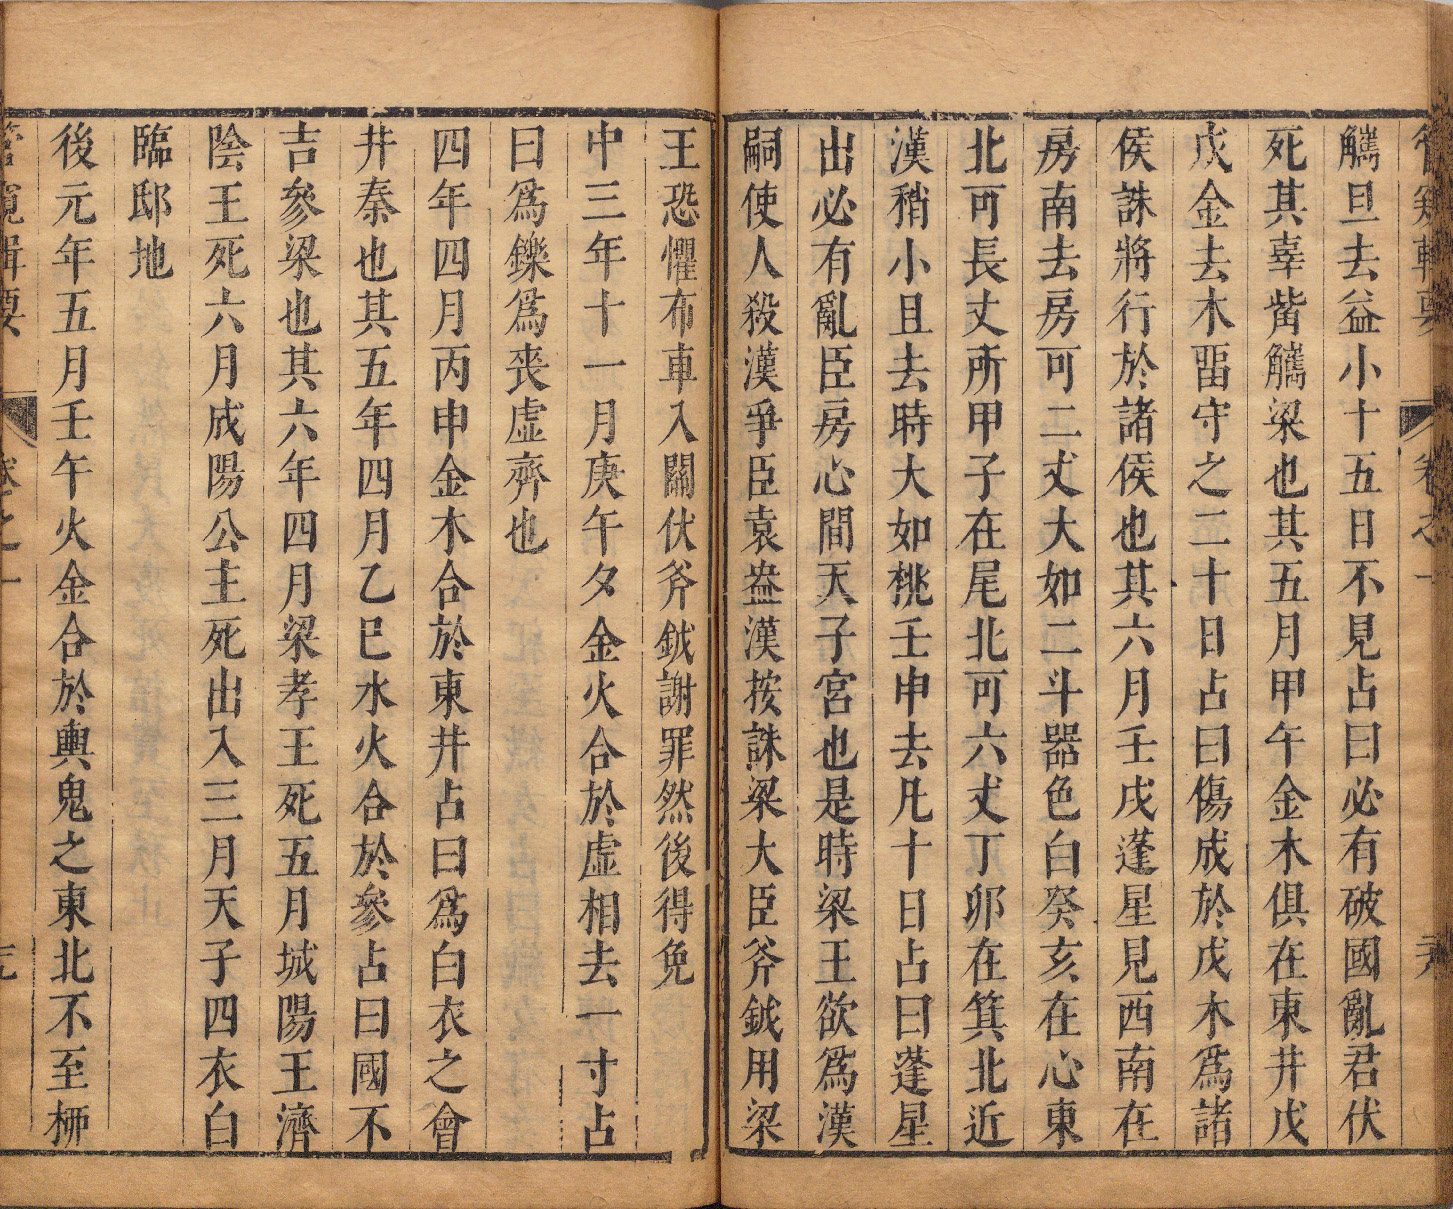 觿旦去益小十五日不見占曰必有破國亂君伏
死其辜觜觿梁也其五月甲午金木俱在東井戊
戊金去木畱守之二十日占曰傷成於戊木爲諸
侯誅將行於諸侯也其六月壬戌蓬星見西南在
房南去房可二丈大如二斗器色白癸亥在心東
北可長丈所甲子在尾北可六丈丁卯在箕北近
漢稍小且去時大如桃壬申去凡十日占曰蓬星
出必有亂臣房心間天子宮也是時梁王欲爲漢
嗣使人殺漢爭臣袁盎漢按誅梁大臣斧鉞用梁
王恐懼布車入關伏斧鉞謝罪然後得免
中三年十一月庚午夕金火合於虛相去一寸占
曰爲鑠爲喪虛齊也
四年四月丙申金木合於東井占曰爲白衣之會
井秦也其五年四月乙巳水火合於參占曰國不
吉參梁也其六年四月梁孝王死五月城陽王濟
陰王死六月成陽公主死出入三月天子四衣白
臨邸地
後元年五月壬午火金合於輿鬼之東北不至柳
管窺輯要
卷之一